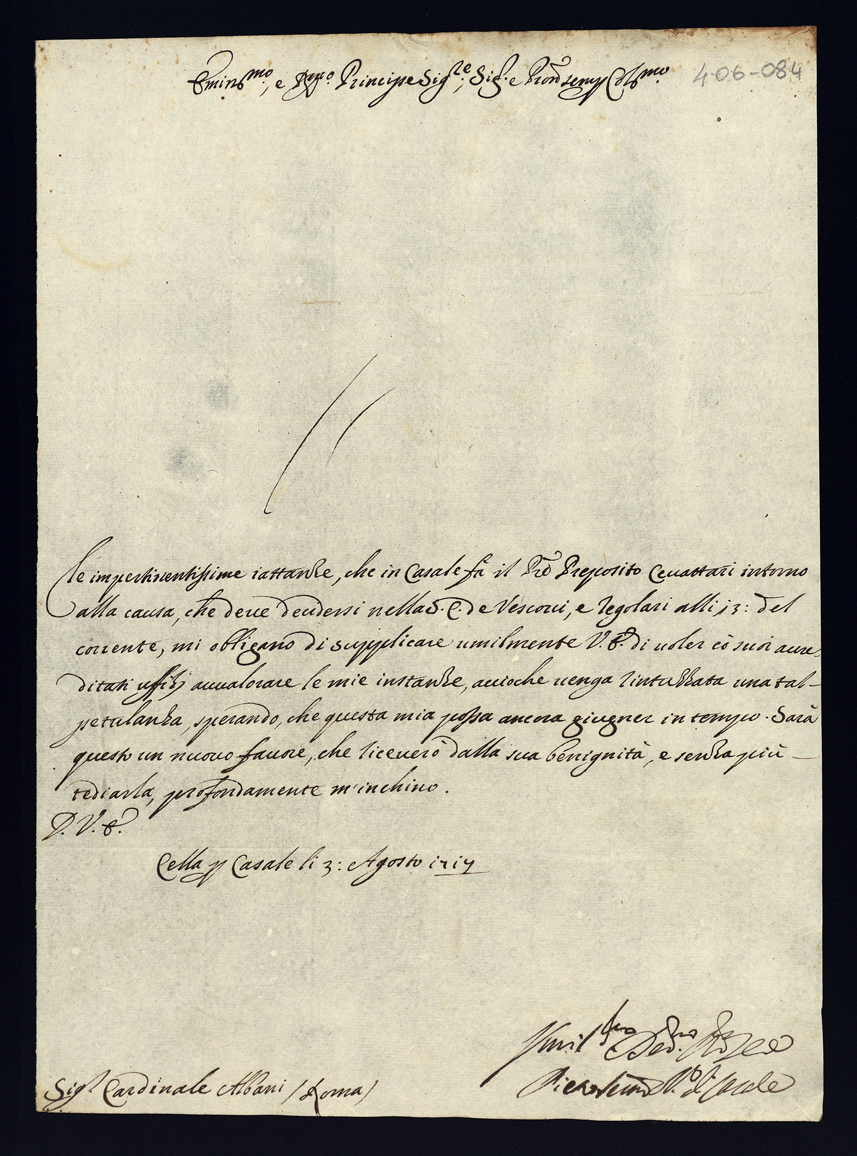 Emin:mo, e R.mo Principe Sig.re, Sig.r e Pron semp Col.mo
406-084
le impertinentissime iattanze, che in Casale fà il Prè Preposito Cevattari intorno
alla causa, che deve decidersi nella S. C. de Vescovi, e Regolari alli 13: del
corrente, mi obligano di supplicare umilmente V. E. di voler cò suoi accre-
ditati uffizj avvalorare le mie instanze, acciochè venga rintuzzata una tal
petulanza, sperando, che questa mia possa ancora giugner in tempo. Sarà
questo un nuovo favore, che riceverò dalla sua benignità, e senza più
tediarla, profondamente m'inchino.
D. V. E.
Cella p Casale li 3: Agosto 1717
Umil.
V. di Casale
Sig.r Cardinale Albani (Roma)